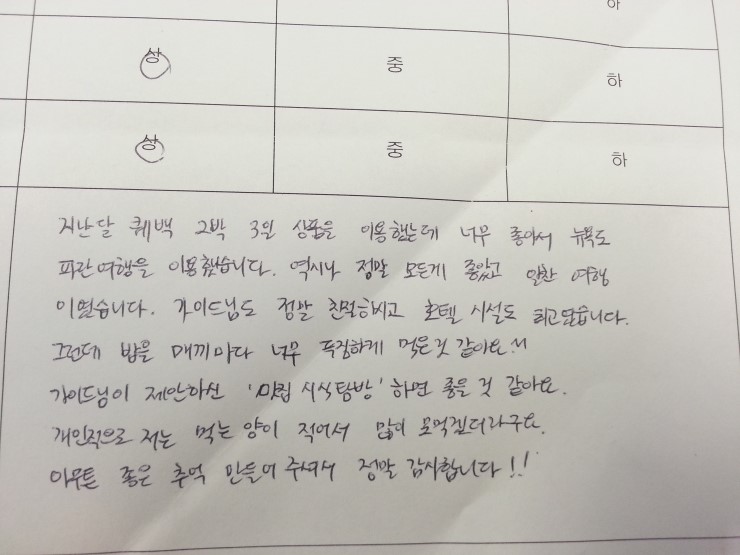 하
상 중 하
상 중 하
지난달 퀘백 2박 3일 상품을 이용했는데 너무 좋아서 뉴욕도
파란여행을 이용했습니다. 역시나 정말 모든게 좋았고 알찬 여행
이였습니다. 가이드님도 정말 친절하시고 호텔 시설도 최고였습니다.
그런데 밥을 매끼마다 너무 푸짐하게 먹은것 같아요.^^
가이드님이 제안하신 '맛집 시식탐방' 하면 좋을 것 같아요.
개인적으로 저는 먹는 양이 적어서 많이 못먹겠더라구요.
아무튼 좋은 추억 만들어 주셔서 정말 감사합니다!!